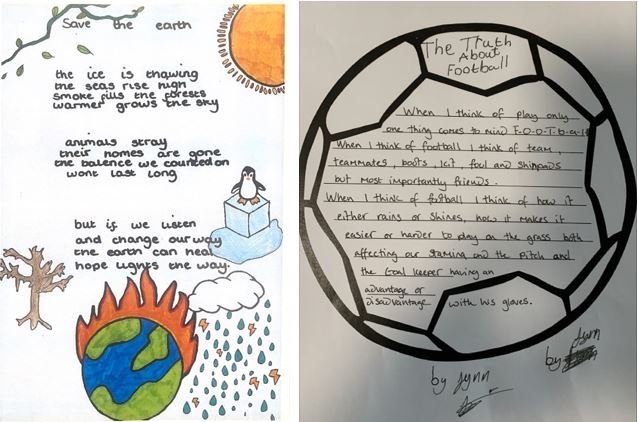 Save the earth
the ice is thawing
the seas rise high
smoke fills the forests
warmer grows the sky
animals stray
their homes are gone
the balence we counted on
wont last long
but if we listen
and change our way
the earth can heal
hope lights the way.
The Truth
About
Football
When I think of play only
one thing comes to mind F-O-O-T-b-a-ll
When I think of football I think of team,
teammates, boots, kit, foul and shinpads
but most importantly friends.
When I think of football I think of how it
either rains or shines, how it makes it
easier or harder to play on the grass both
affecting our stamina and the pitch and
the Goal keeper having an
advantage or
disadvantage with his gloves.
by Jynn
by Jynn